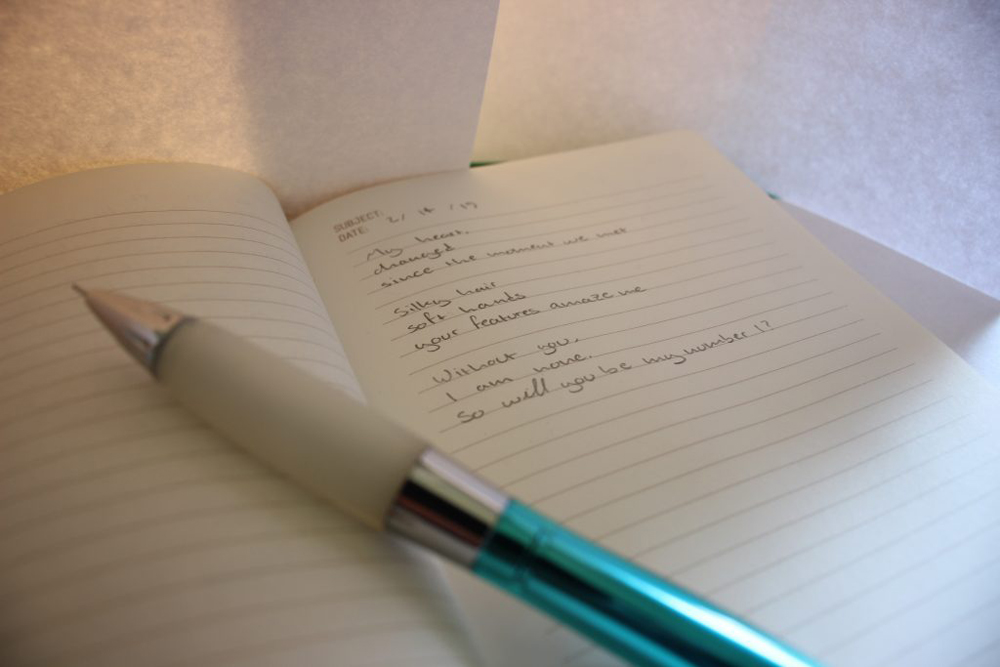 SUBJECT:
DATE: 2/ 14 /19
My heart,
changed
since the moment we met
Silky hair
soft hands
your features amaze me
Without you,
I am none.
So will you be my number 1?